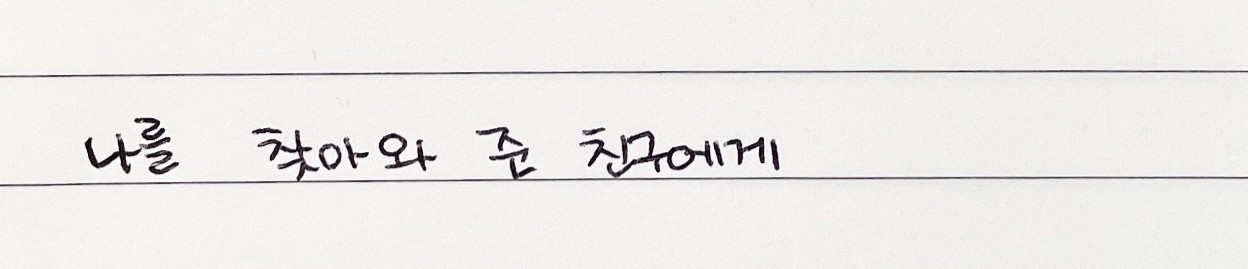 나를 찾아와 준 친구에게